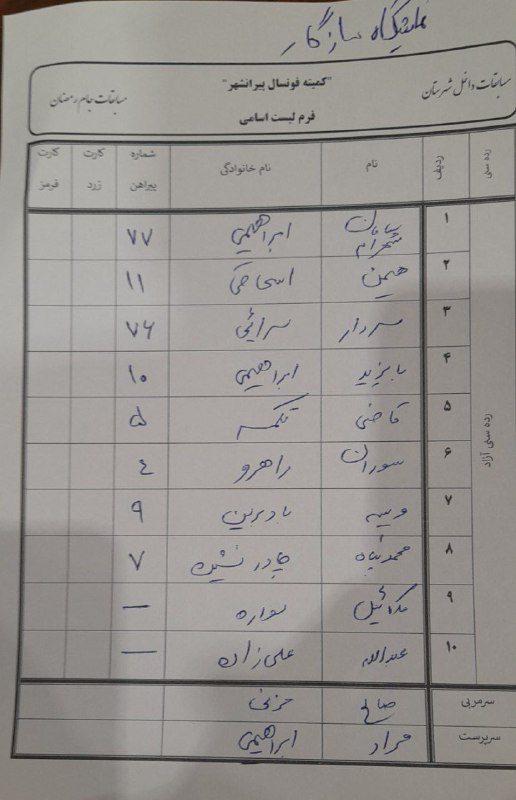 نمایشگاه سازگار
مسابقات داخل شهرستان
"کمیته فوتسال پیرانشهر"
مسابقات جام رمضان
فرم لیست اسامی
رده سنی ردیف نام نام خانوادگی شماره پیراهن کارت زرد کارت قرمز
رده سنی آزاد
۱ شهرام ابراهیمی ۷۷
۲ هیمن اسحاقی ۱۱
۳ سردار سرائی ۷۶
۴ بایزید ابراهیمی ۱۰
۵ قاضی تکمه ۵
۶ سوران راهرو ٤
۷ وریا ۹
۸ محمدپناه چادرنشین ۷
۹ میکائیل سواره —
۱۰ عبدالله علی‌زاده —
سرمربی صالح حزنی
سرپرست مراد ابراهیمی